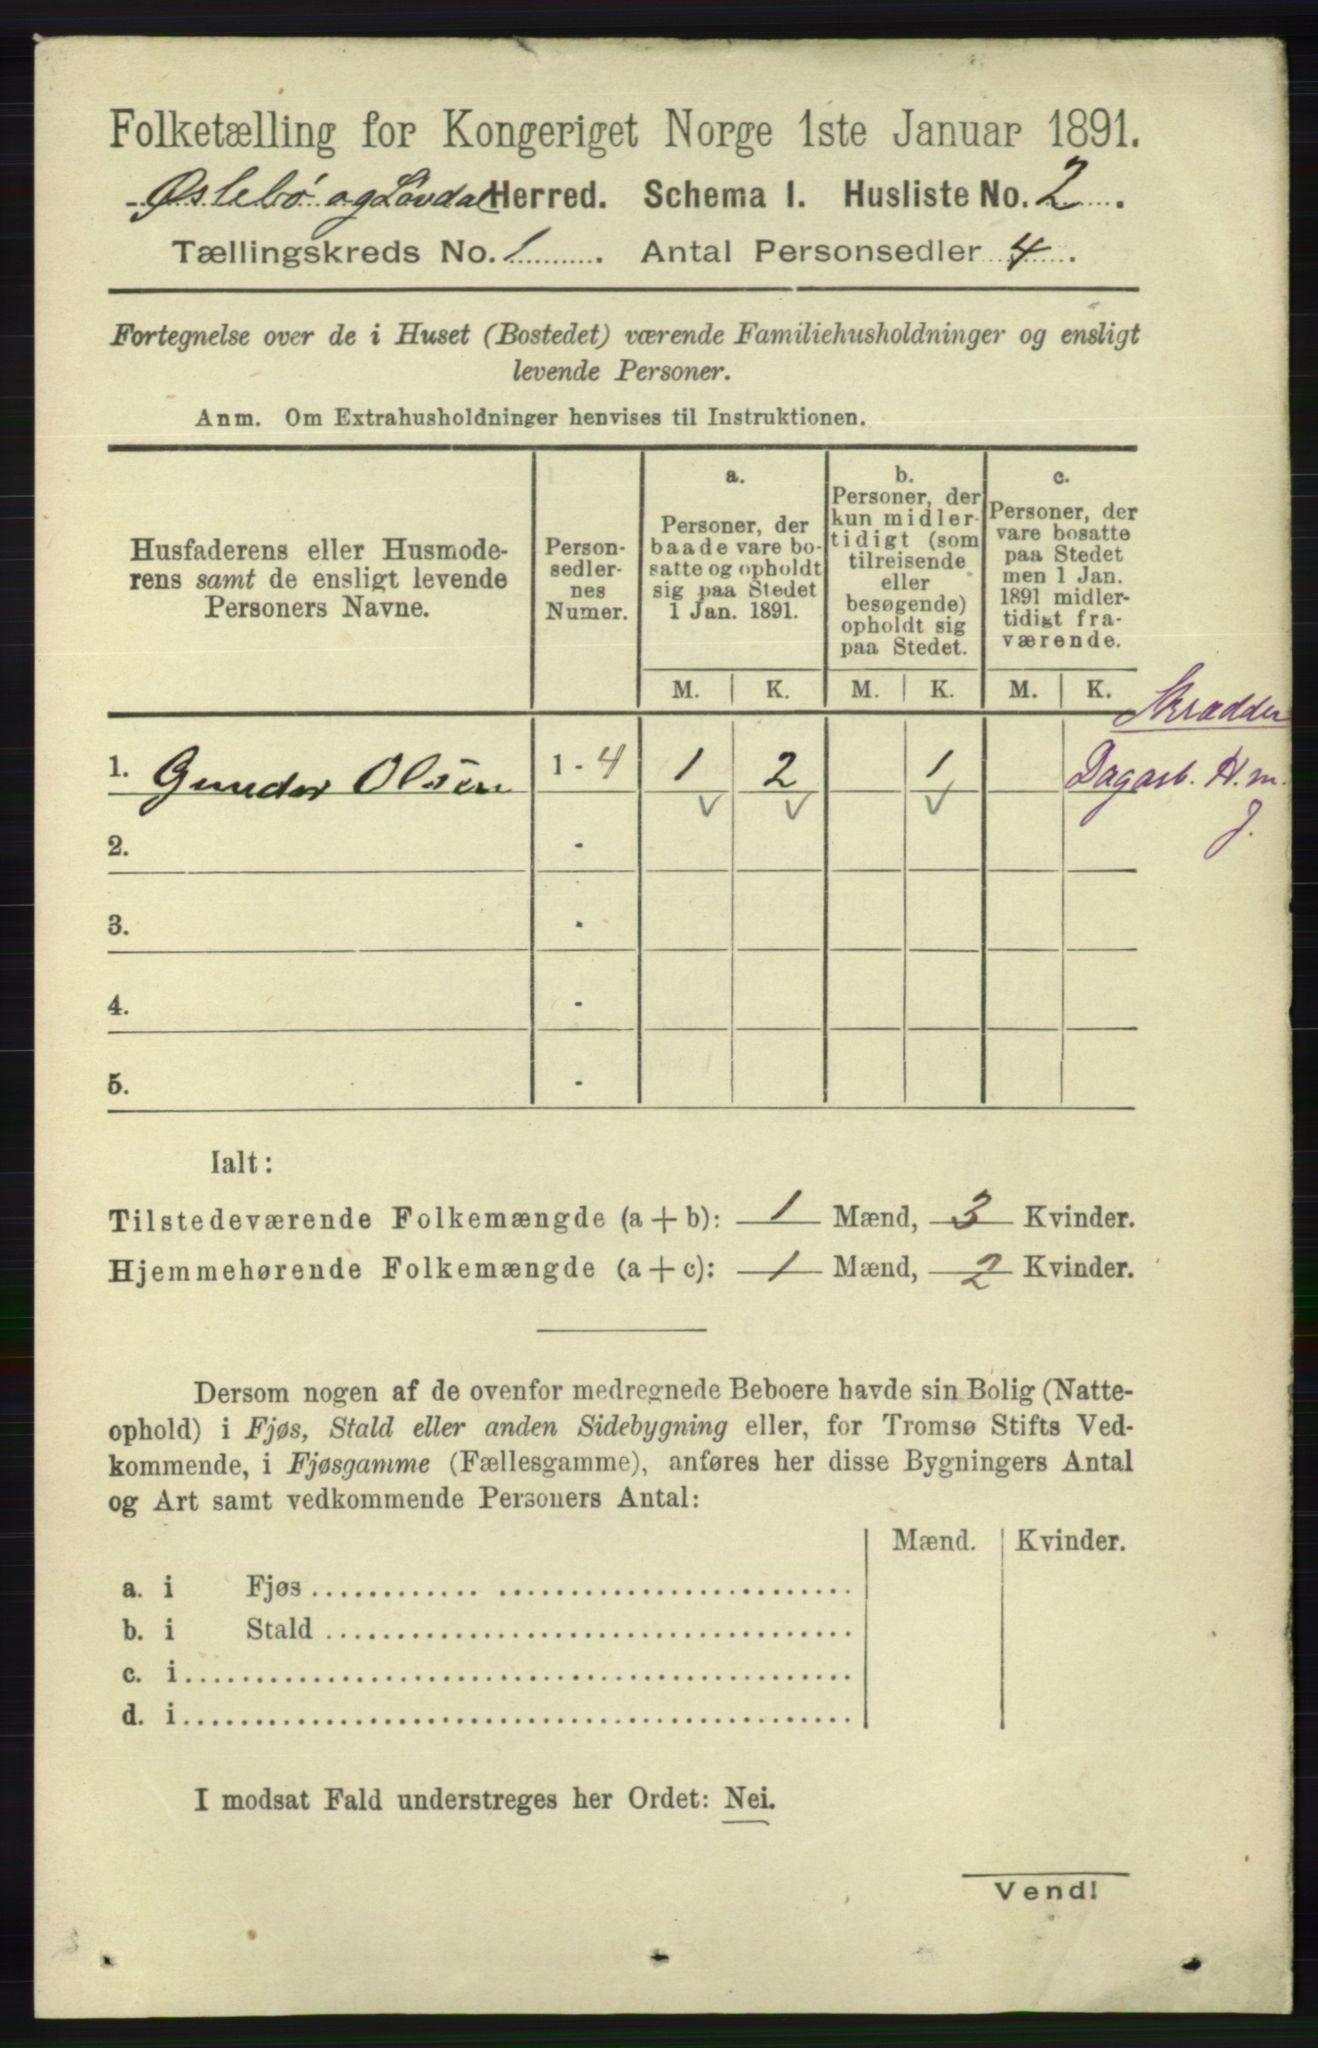 Folketælling for Kongeriget Norge 1ste Januar 1891.
Øslebø og Løvdal Herred. Schema I. Husliste No. 2.
Tællingskreds No. 1. Antal Personsedler 4.
Fortegnelse over de i Huset (Bostedet) værende Familiehusholdninger og ensligt
levende Personer.
Anm. Om Extrahusholdninger henvises til Instruktionen.
Husfaderens eller Husmode-
rens samt de ensligt levende
Personers Navne.
Person-
sedler-
nes
Numer.
a.
Personer, der
baade vare bo-
satte og opholdt
sig paa Stedet
1 Jan. 1891.
b.
Personer, der
kun midler-
tidigt (som
tilreisende
eller
besøgende)
opholdt sig
paa Stedet.
c.
Personer, der
vare bosatte
paa Stedet
men 1 Jan.
1891 midler-
tidigt fra-
værende.
M. K. M. K. M. K.
Skrædder
1. Gunder Olsen 1-4 1 2 1 Dagarb. H.m.
J.
2. -
3. -
4. -
5. -
Ialt:
Tilstedeværende Folkemængde (a + b): 1 Mænd, 3 Kvinder.
Hjemmehørende Folkemængde (a + c): 1 Mænd, 2 Kvinder.
Dersom nogen af de ovenfor medregnede Beboere havde sin Bolig (Natte-
ophold) i Fjøs, Stald eller anden Sidebygning eller, for Tromsø Stifts Ved-
kommende, i Fjøsgamme (Fællesgamme), anføres her disse Bygningers Antal
og Art samt vedkommende Personers Antal:
Mænd. Kvinder.
a. i Fjøs
b. i Stald
c. i
d. i
I modsat Fald understreges her Ordet: Nei.
Vend!